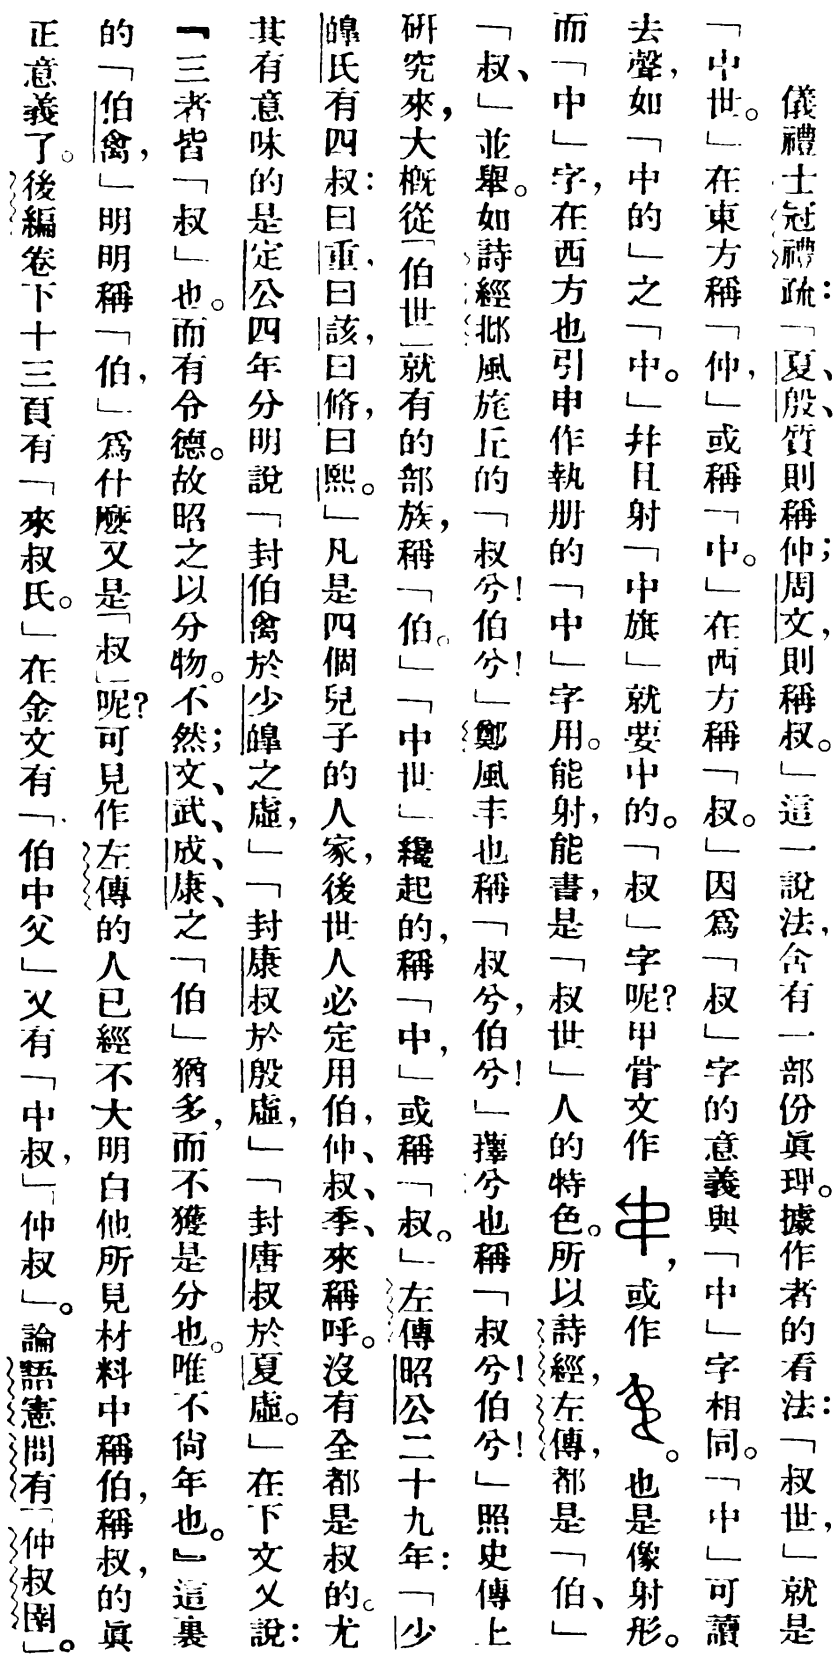 儀禮士冠禮疏：「夏、殷、質則稱仲；周文，則稱叔。」這一說法，含有一部份眞理。據作者的看法：「叔世，」就是
「中世。」在東方稱「仲，」或稱「中。」在西方稱「叔。」因爲「叔」字的意義與「中」字相同。「中」可讀
去聲，如「中的」之「中。」幷且射「中旗」就要中的。「叔」字呢？甲骨文作，或作。也是像射形。
而「中」字，在西方也引申作執册的「中」字用。能射，能書，是「叔世」人的特色。所以詩經，左傳，都是「伯、」
「叔、」並舉。如詩經邶風旄丘的「叔兮！伯兮！」鄭風丰也稱「叔兮，伯兮！」蘀兮也稱「叔兮！伯兮！」照史傳上
研究來，大槪從「伯世」就有的部族，稱「伯。」「中世」纔起的，稱「中，」或稱「叔。」左傳昭公二十九年：「少
皥氏有四叔：曰重，曰該，曰脩，曰熙。」凡是四個兒子的人家，後世人必定用伯，仲、叔、季、來稱呼。沒有全都是叔的。尤
其有意味的是定公四年分明說「封伯禽於少皥之虛，」「封康叔於殷虛，」「封唐叔於夏虛。」在下文又說：
『三者皆「叔」也。而有令德。故昭之以分物。不然；文、武、成、康、之「伯」猶多，而不獲是分也。唯不尙年也。』這裏
的「伯禽，」明明稱「伯，」爲什麼又是「叔」呢？可見作左傳的人已經不大明白他所見材料中稱伯，稱叔，的眞
正意義了。後編卷下十三頁有「來叔氏。」在金文有「伯中父」又有「中叔，」「仲叔」。論語憲問有「仲叔圉」。